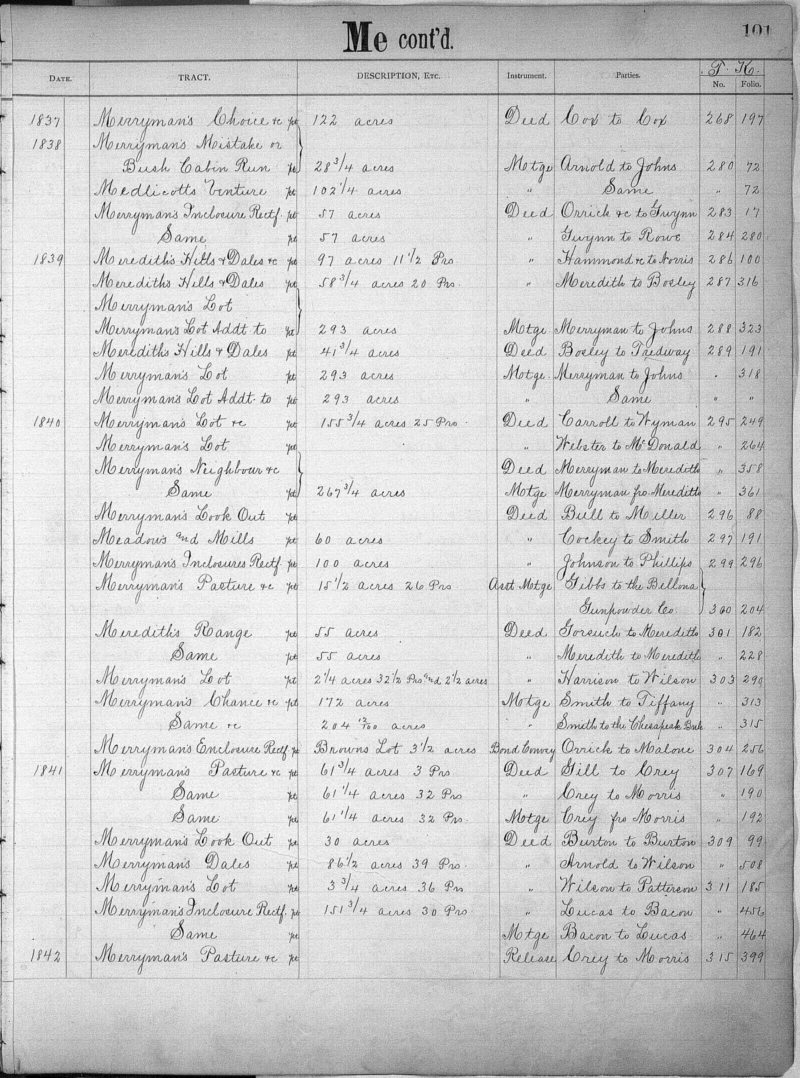 Me cont'd.
101
DATE. TRACT. DESCRIPTION, ETC. Instrument. Parties. T. K.
No. Folio.
1837 Merryman's Choice &c pt 122 acres Deed Cox to Cox 268 197
1838 Merryman's Mistake or
Bush Cabin Run pt 28 3/4 acres Motge Arnold to Johns 280 72
Medlicotts Venture pt 102 1/4 acres " Same " 72
Merryman's Inclosure Rectf. pt 57 acres Deed Orrick &c to Gwynn 283 17
Same pt 57 acres " Gwynn to Rowe 284 280
1839 Meredith's Hills & Dales &c pt 97 acres 11 1/2 Prs " Hammond &c to Norris 286 100
Meredith's Hills & Dales pt 58 3/4 acres 20 Prs. " Meredith to Bosley 287 316
Merryman's Lot
Merryman's Lot Addt. to pt 293 acres Motge Merryman to Johns 288 323
Meredith's Hills & Dales pt 41 3/4 acres Deed Bosley to Tredway 289 191
Merryman's Lot pt 293 acres Motge. Merryman to Johns " 318
Merryman's Lot Addt. to pt 293 acres " Same " "
1840 Merryman's Lot &c pt 155 3/4 acres 25 Prs. Deed Carroll to Wyman 295 249
Merryman's Lot pt " Webster to McDonald " 264
Merryman's Neighbour &c Deed Merryman to Meredith " 358
Same pt 267 3/4 acres Motge Merryman fro Meredith " 361
Merryman's Look Out pt Deed Bull to Miller 296 88
Meadows and Mills pt 60 acres " Cockey to Smith 297 191
Merryman's Inclosures Rectf. pt 100 acres " Johnson to Phillips 299 296
Merryman's Pasture &c pt 15 1/2 acres 26 Prs Asst Motge Gibbs to the Bellona
Gunpowder Co 300 204
Meredith's Range pt 55 acres Deed Gorsuch to Meredith 301 182
Same pt 55 acres " Meredith to Meredith " 228
Merryman's Lot pt 2 1/4 acres 32 1/2 Prs and 2 1/2 acres " Harrison to Wilson 303 290
Merryman's Chance &c pt 172 acres Motge Smith to Tiffany " 313
Same &c 204 12/100 acres " Smith to the Chesapeak Bnk " 315
Merryman's Enclosure Rectf pt Browns Lot 3 1/2 acres Bond Convey Orrick to Malone 304 256
1841 Merryman's Pasture &c pt 61 3/4 acres 3 Prs Deed Gill to Crey 307 169
Same pt 61 1/4 acres 32 Prs " Crey to Morris " 190
Same pt 61 1/4 acres 32 Prs. Motge Crey fro Morris " 192
Merryman's Look Out pt 30 acres Deed Burton to Burton 309 99
Merryman's Dales pt 86 1/2 acres 39 Prs " Arnold to Wilson " 508
Merryman's Lot pt 3 3/4 acres 36 Prs " Wilson to Patterson 311 185
Merryman's Inclosure Rectf. pt 151 3/4 acres 30 Prs " Lucas to Bacon " 456
Same pt Motge Bacon to Lucas " 464
1842 Merryman's Pasture &c pt Release Crey to Morris 315 399